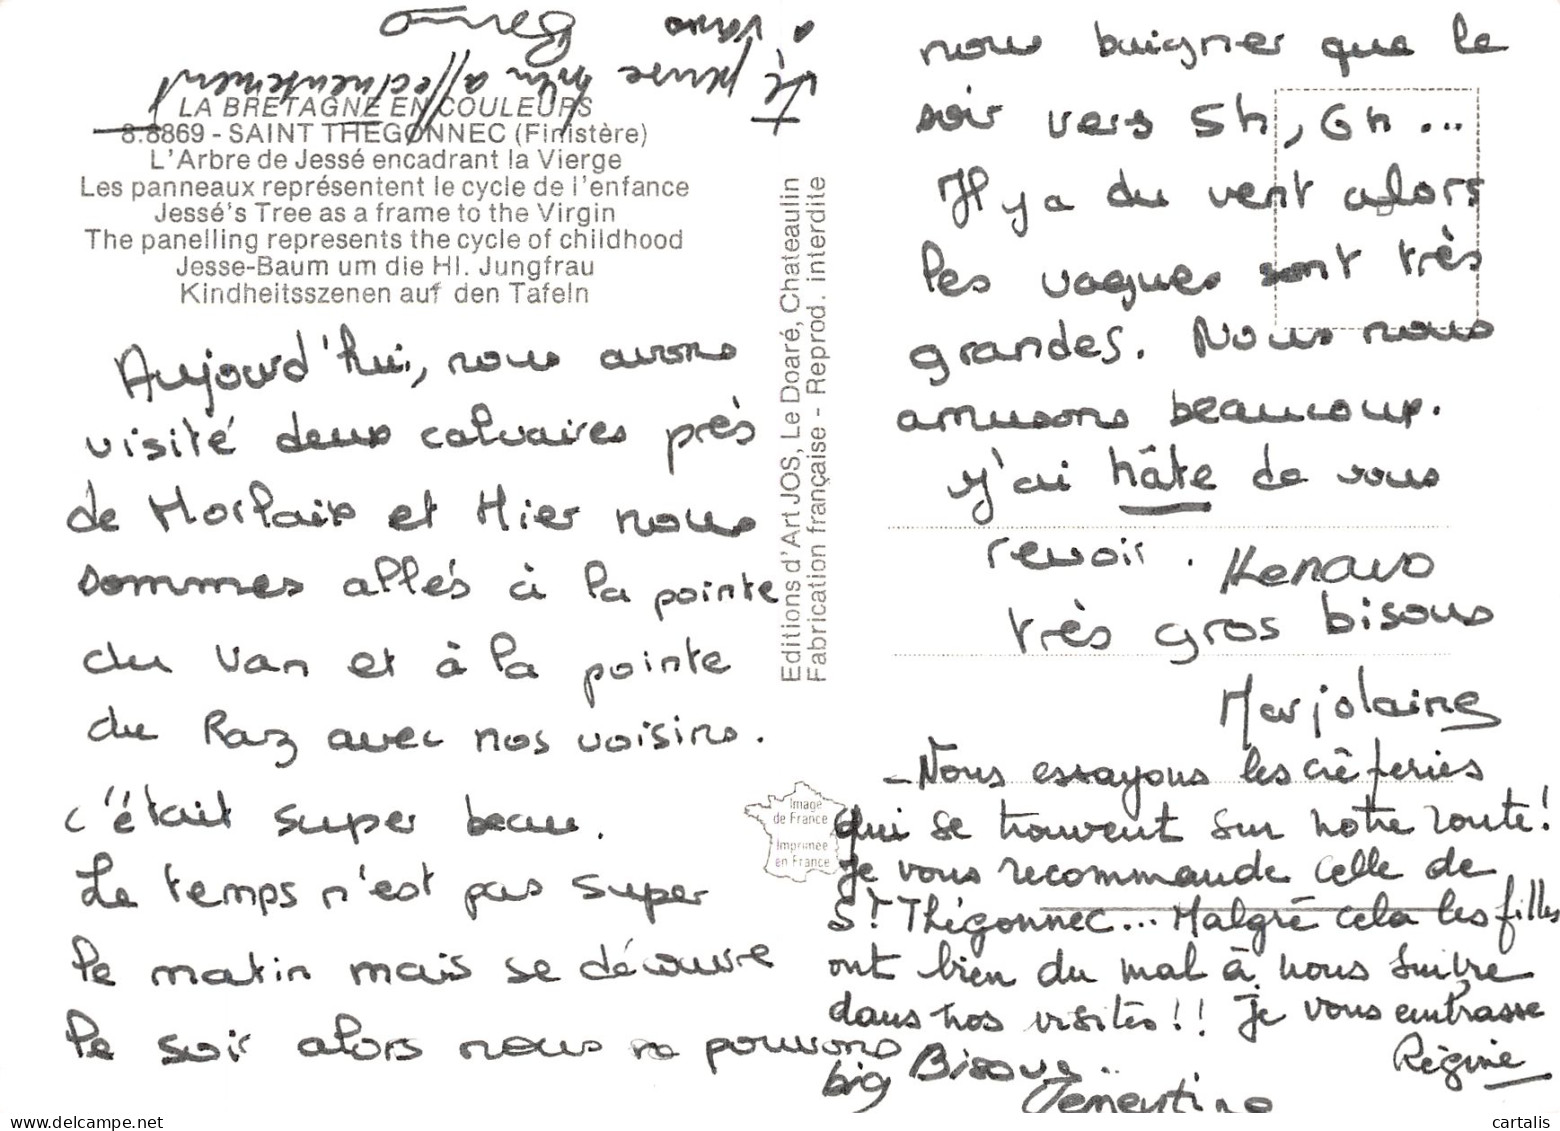 Je pense bien affectueusement
à vous
LA BRETAGNE EN COULEURS
8.8869 - SAINT THEGONNEC (Finistère)
L'Arbre de Jessé encadrant la Vierge
Les panneaux représentent le cycle de l'enfance
Jessé's Tree as a frame to the Virgin
The panelling represents the cycle of childhood
Jesse-Baum um die Hl. Jungfrau
Kindheitsszenen auf den Tafeln
Aujourd'hui, nous avons
visité deux calvaires près
de Morlaix et Hier nous
sommes allés à la pointe
du Van et à la pointe
du Raz avec nos voisins.
c'était super beau.
Le temps n'est pas super
le matin mais se découvre
le soir alors nous ne pouvons
Editions d'Art JOS, Le Doaré, Chateaulin
Fabrication française - Reprod. interdite
Image
de France
Imprimée
en France
nous baigner que le
soir vers 5h, 6h...
Il y a du vent alors
les vagues sont très
grandes. Nous nous
amusons beaucoup.
J'ai hâte de vous
revoir. Kenavo
très gros bisous
Marjolaine
- Nous essayons les crêperies
qui se trouvent sur notre route!
Je vous recommande celle de
St Thégonnec... Malgré cela les filles
ont bien du mal à nous suivre
dans nos visites!! Je vous embrasse
Régine
big Bisous..
Clémentine
cartalis